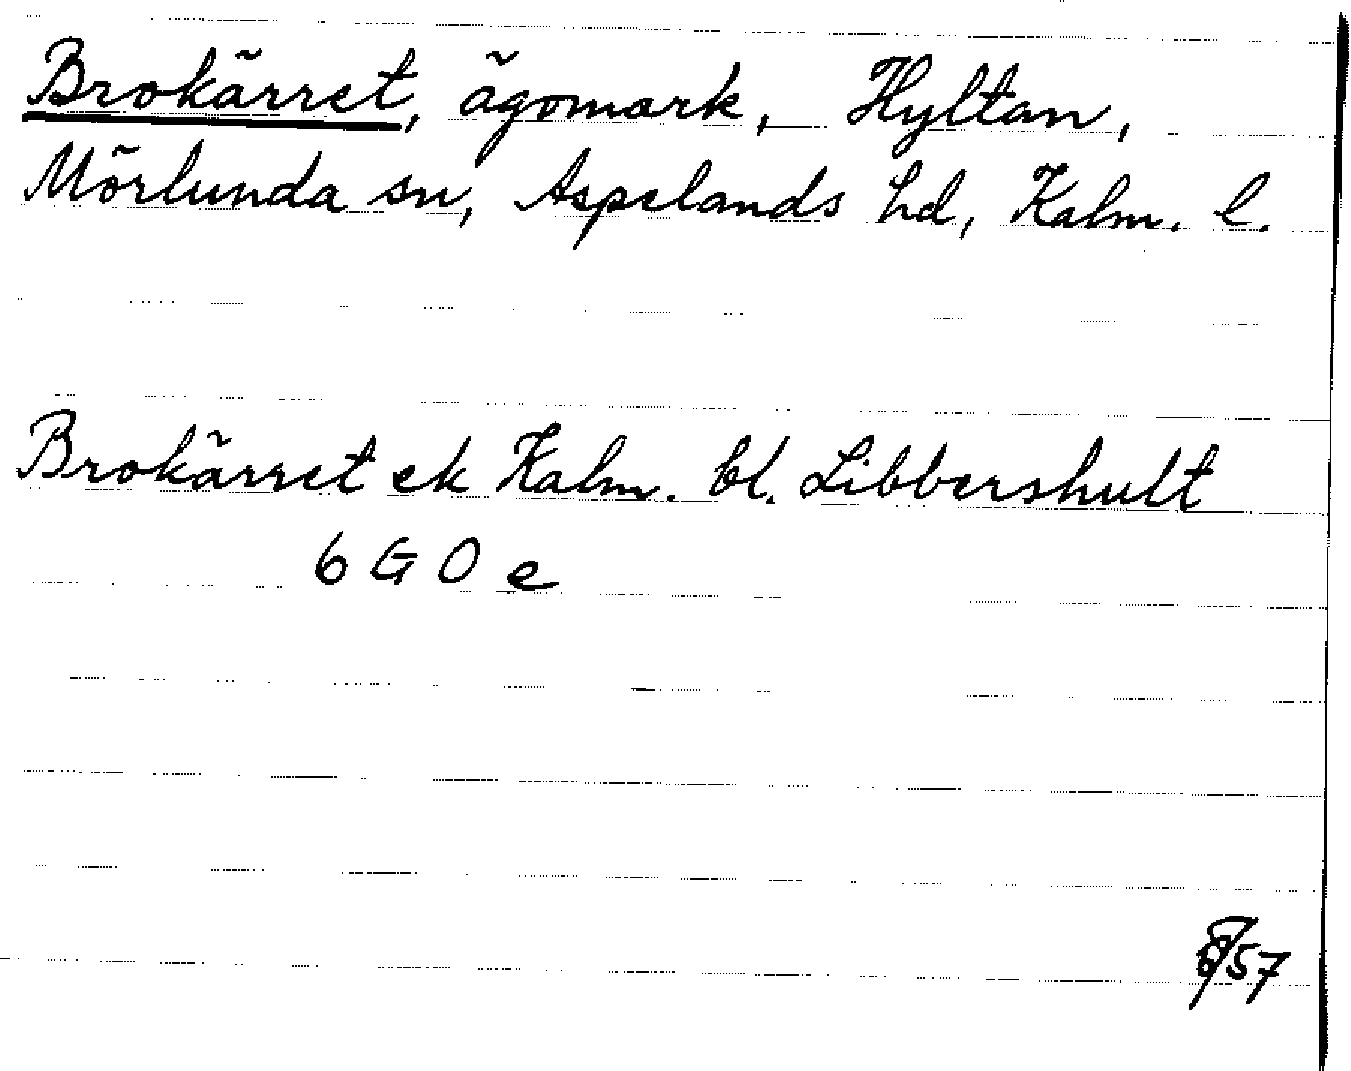 Brokärret, ägomark, Hyltan,
Mörlunda sn, Aspelands hd, Kalm. l.
Brokärret ek Kalm. bl. Libbershult
6 G 0 e
/57